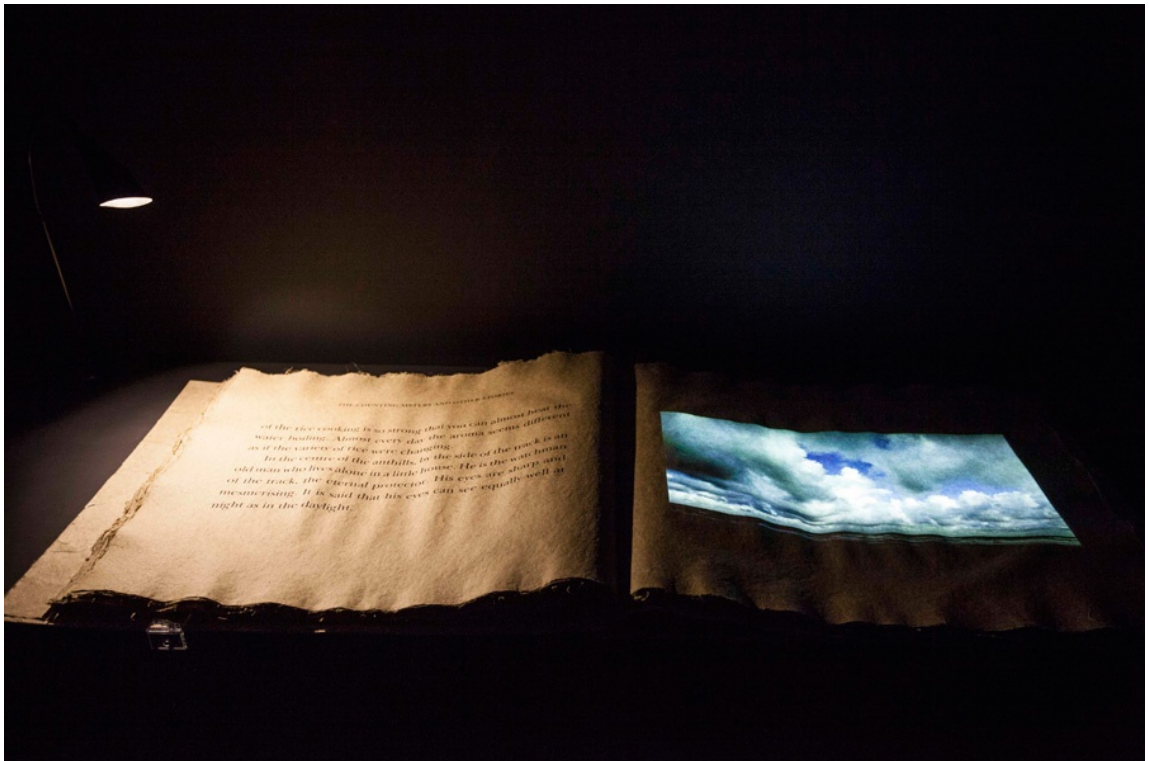 THE COUNTING SISTERS AND OTHER STORIES
of the rice cooking is so strong that you can almost hear the
water boiling. Almost every day the aroma seems different
as if the variety of rice were changing.
In the centre of the anthills, by the side of the track is an
old man who lives alone in a little house. He is the watchman
of the track, the eternal protector. His eyes are sharp and
mesmerising. It is said that his eyes can see equally well at
night as in the daylight.